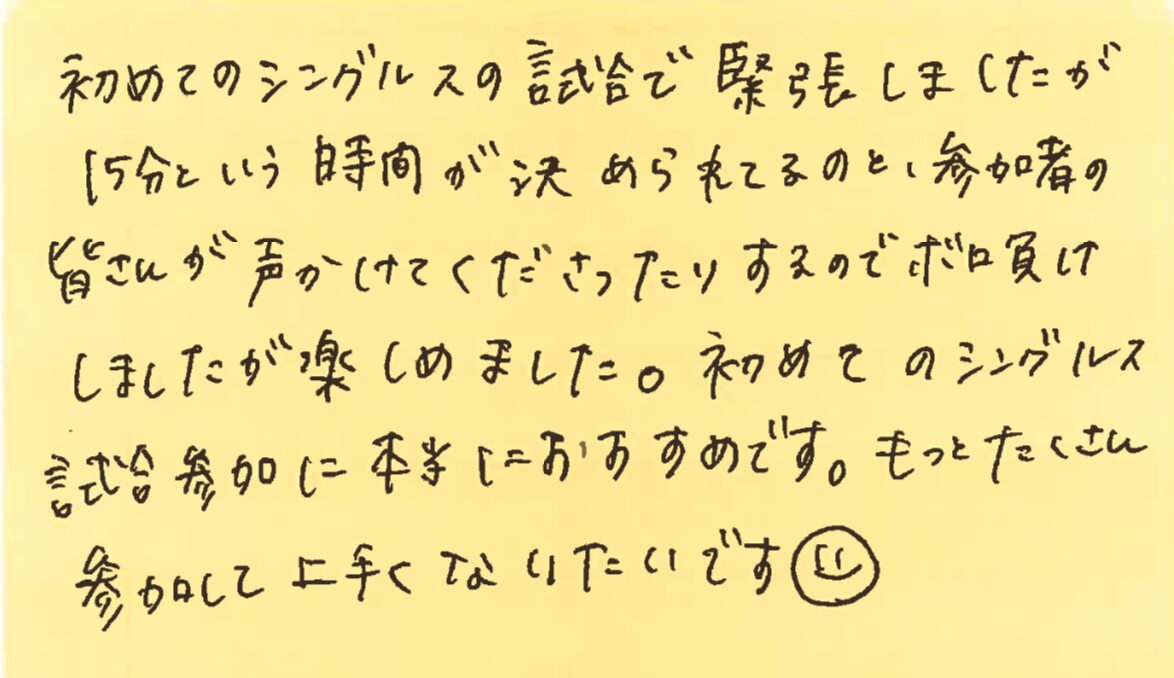 初めてのシングルスの試合で緊張しましたが
15分という時間が決められてるのと、参加者の
皆さんが声かけてくださったりするのでボロ負け
しましたが楽しめました。初めてのシングルス
試合参加に本当におすすめです。もっとたくさん
参加して上手くなりたいです